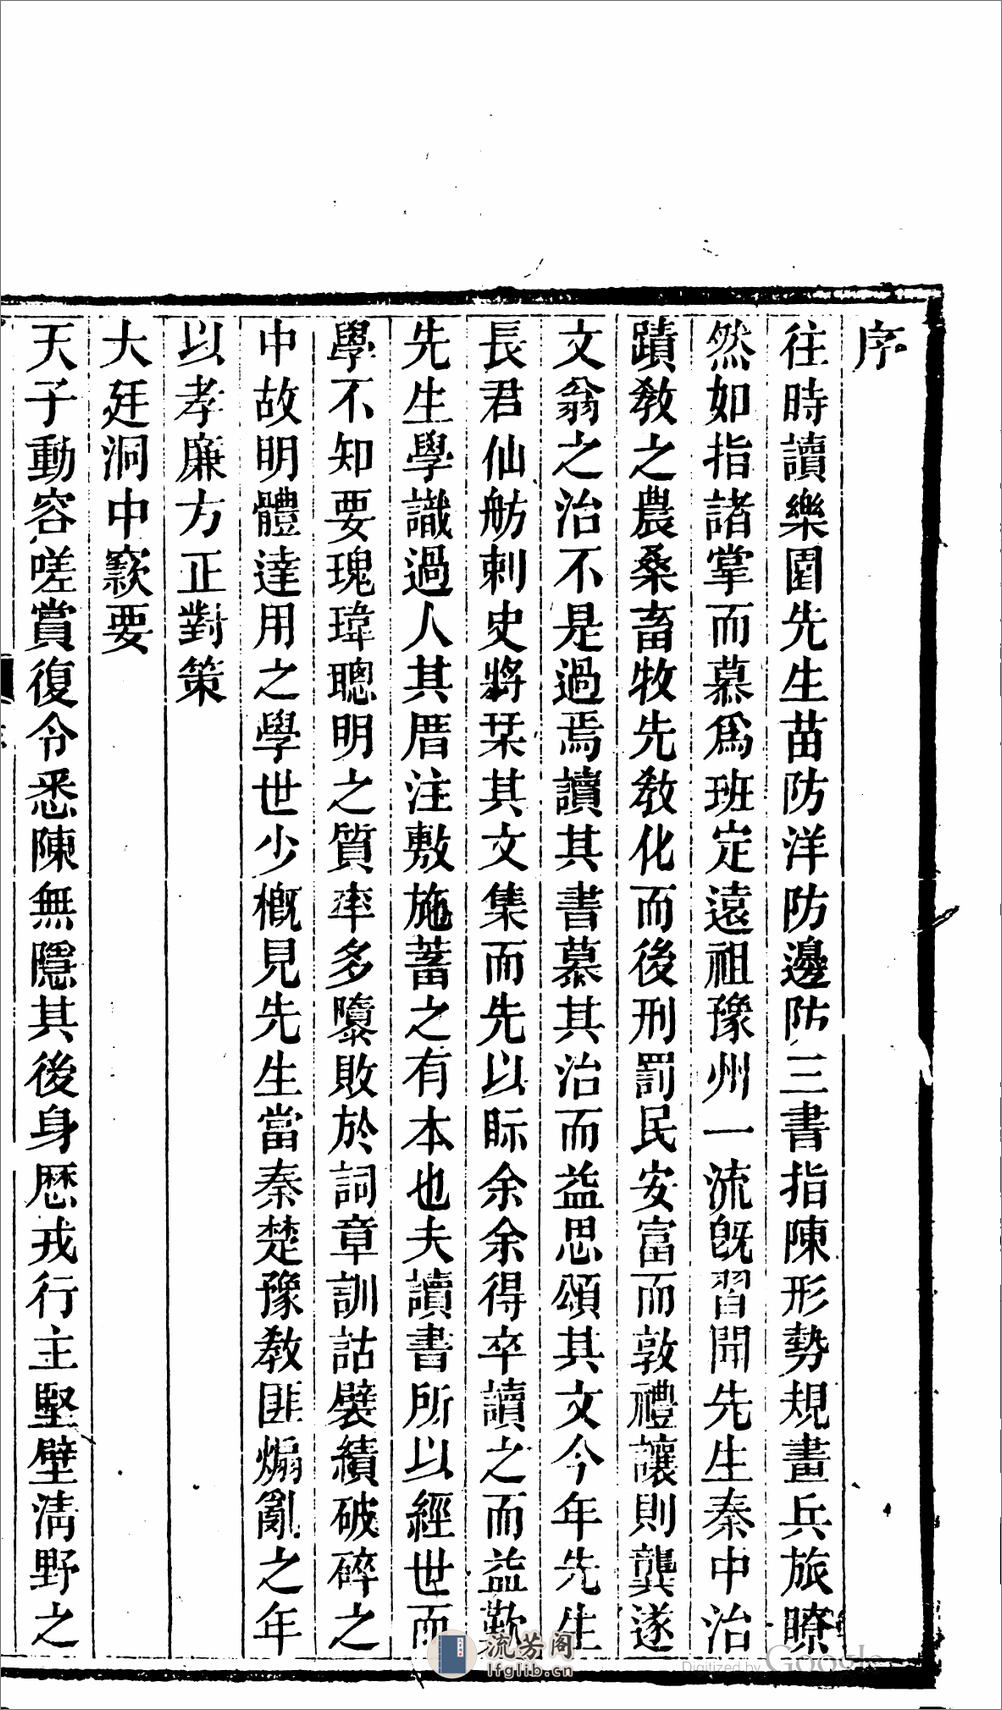 序
往時讀樂園先生苗防洋防邊防三書指陳形勢規畫兵旅瞭
然如指諸掌而慕爲班定遠祖豫州一流旣習聞先生秦中治
蹟敎之農桑畜牧先敎化而後刑罰民安富而敦禮讓則龔遂
文翁之治不是過焉讀其書慕其治而益思頌其文今年先生
長君仙舫刺史將栞其文集而先以眎余余得卒讀之而益歎
先生學識過人其厝注敷施蓄之有本也夫讀書所以經世而
學不知要瑰瑋聰明之質率多隳敗於詞章訓詁襞績破碎之
中故明體達用之學世少槪見先生當秦楚豫敎匪煽亂之年
以孝廉方正對策
大廷洞中窾要
天子動容嗟賞復令悉陳無隱其後身歷戎行主堅壁淸野之
流芳阁
lfglib.cn
Digitized by Google